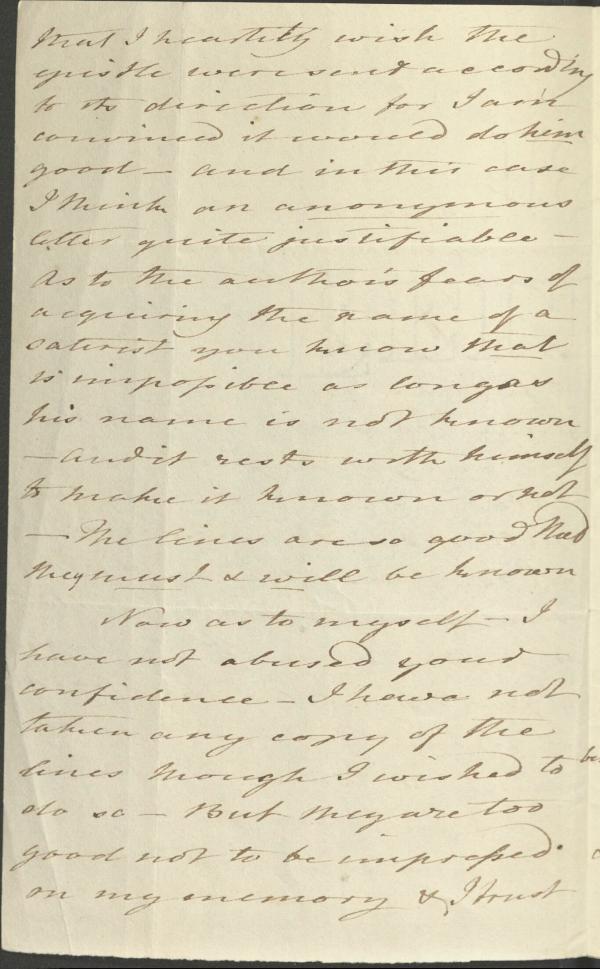 that I heartily wish the
epistle were send according
to its direction for I am
convinced it would do him
good — and in this case
I think an anonymous
letter quite justifiable —
As to the author's fears of
acquiring the name of a
satirist you know that
is impossible as long as
his name is not known
— and it rests with himself
to make it known or not
— The lines are so good that
they must & will be known
Now as to myself — I
have not abused your
confidence — I have not
taken any copy of the
lines though I wished to
do so — But they are too
good not to be impressed
on my memory & I trust